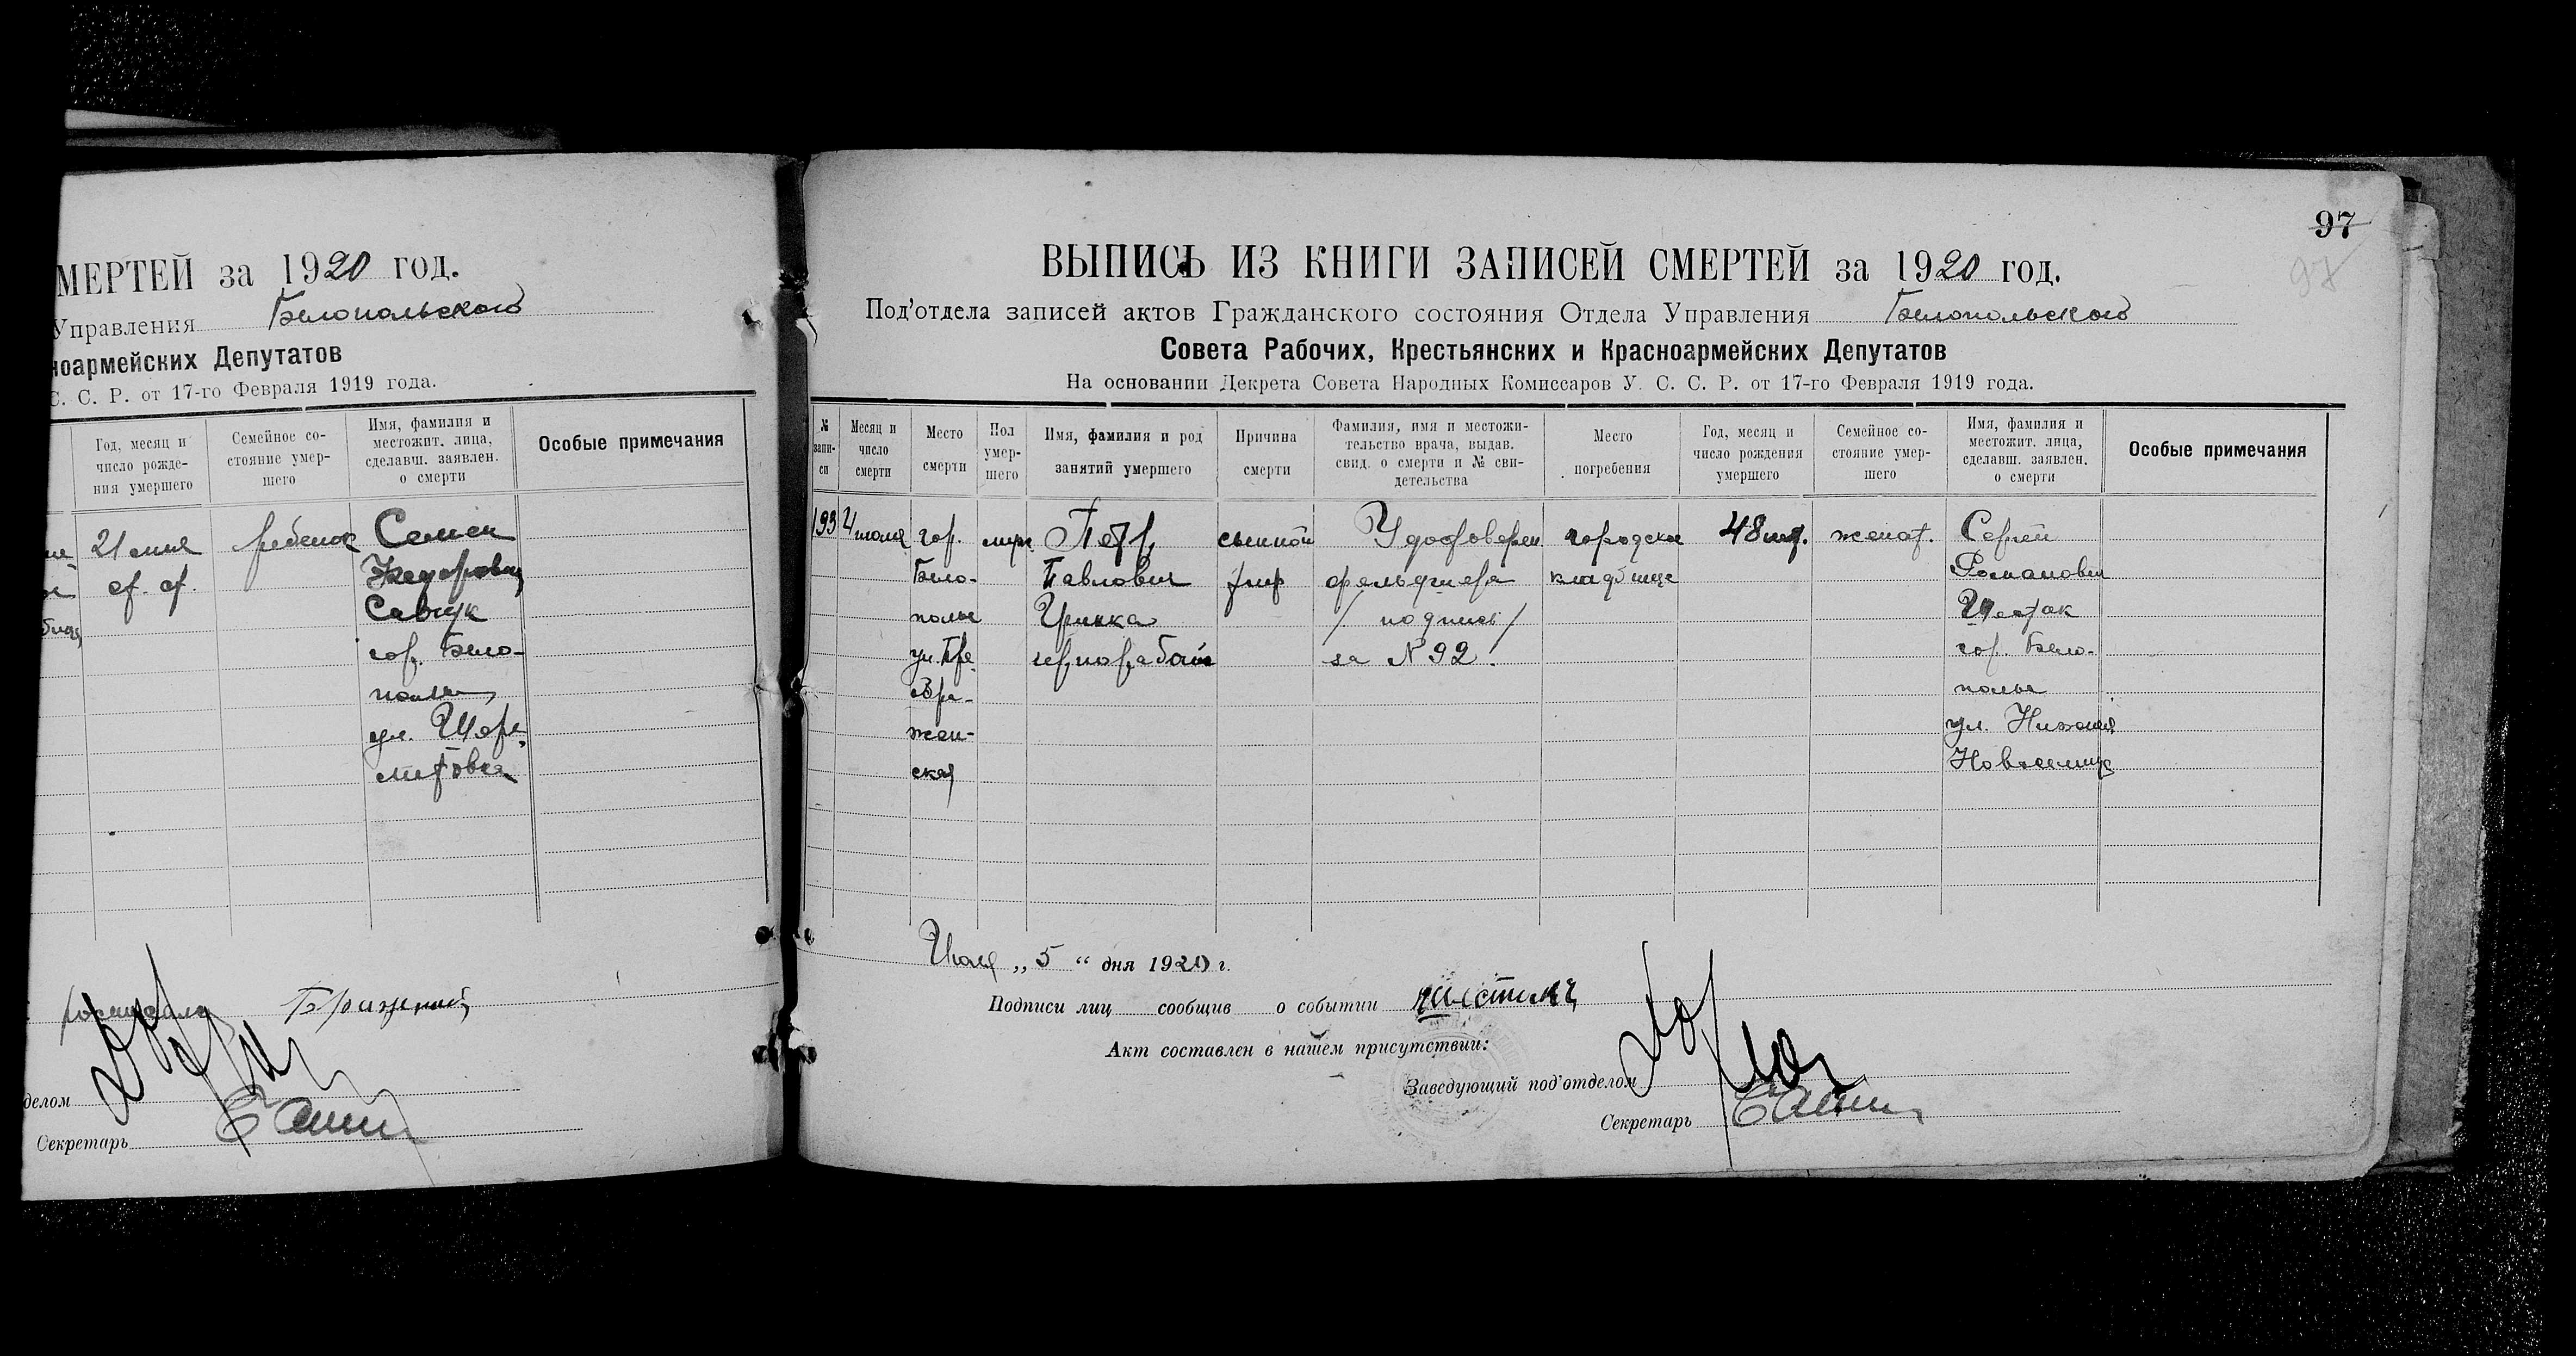 МЕРТЕЙ за 1920 год.
Управления Белопольского
ноармейских Депутатов
С. С. Р. от 17-го Февраля 1919 года.
Год, месяц и число рожде- ния умершего
Семейное со- стояние умер- шего
Имя, фамилия и местожит. лица, сделавш. заявлен. о смерти
Особые примечания
ребенок
Семен
Савчук
гор. Бело-
полье
ул.
Секретарь
делом
97
97
ВЫПИСЬ ИЗ КНИГИ ЗАПИСЕЙ СМЕРТЕЙ за 1920 год.
Под'отдела записей актов Гражданского состояния Отдела Управления Белопольского
Совета Рабочих, Крестьянских и Красноармейских Депутатов
На основании Декрета Совета Народных Комиссаров У. С. С. Р. от 17-го Февраля 1919 года.
№ запи- си
Месяц и число смерти
Место смерти
Пол умер- шего
Имя, фамилия и род занятий умершего
Причина смерти
Фамилия, имя и местожи- тельство врача, выдав. свид. о смерти и № сви- детельства
Место погребения
Год, месяц и число рождения умершего
Семейное со- стояние умер- шего
Имя, фамилия и местожит. лица, сделавш. заявлен. о смерти
Особые примечания
193
4 июля
гор.
Бело-
полье
ул. Пре
обра-
жен-
ская
муж
Петр
Павлович
Гринка
чернорабоч
сыпной
тиф
Удостоверен
фельдшера
/ подпись /
за № 92.
городское
кладбище
48 лет.
женат.
Сергей
Романович
Шестак
гор. Бело-
полье
ул. Нижняя
Июля „ 5 “ дня 1920 г.
Подписи лиц сообщив о событии
Акт составлен в нашем присутствии:
Заведующий под'отделом
Секретарь